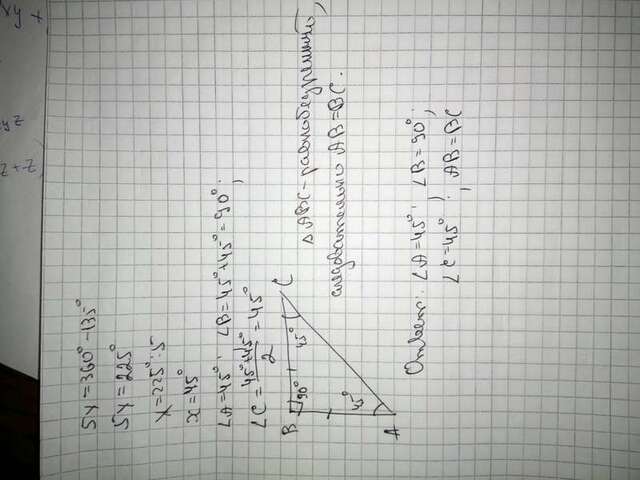 5x=360°-135°
5x=225°
x=225°:5
x=45°
∠A=45°; ∠B=45°+45°=90°;
∠C=(45°+45°)/2=45°
B 90° 45° C
45°
A
△ABC-равнобедренный,
следовательно AB=BC.
Ответ: ∠A=45°; ∠B=90°;
∠C=45°; AB=BC